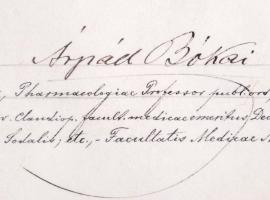 Árpád Bókai
Pharmacologiae Professor publ. ord
Claudiop. facult. medicae emeritus Dec
Sodalis; etc., - Facultatis Medicae